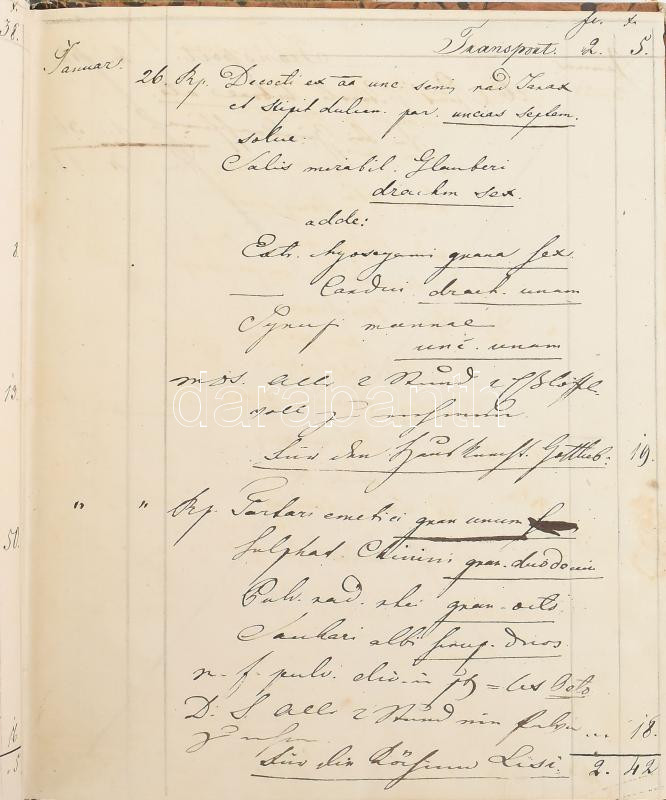 38.
fl. x.
Transport. 2. 5.
Januar. 26. Rp. Decocti ex āā unc. semis rad Tarax
et stipit dulcam. par. uncias septem.
solve.
Salis mirabil. Glauberi
drachm sex.
adde:
8.
Extr. hyoscyami grana sex.
— Cardui drach. unam
Syrupi mannae
unc. unam
13.
MDS. Alle 2 Stund 2 Eßlöffel
voll zu nehmen.
Für den Hausknecht Gottlieb. 19.
darabanth
" " Rp. Tartari emetici gran unum
50.
Sulphat. Chinini gran. duodecim
Pulv. rad. rhei gran. octo.
Sachari albi scrup. duos
m. f. pulv. div. in octo
D. S. Alle 2 Stund ein Pulver ... 18.
16
zu nehmen
Für die Köchinn Lisi. 2. 42
5.